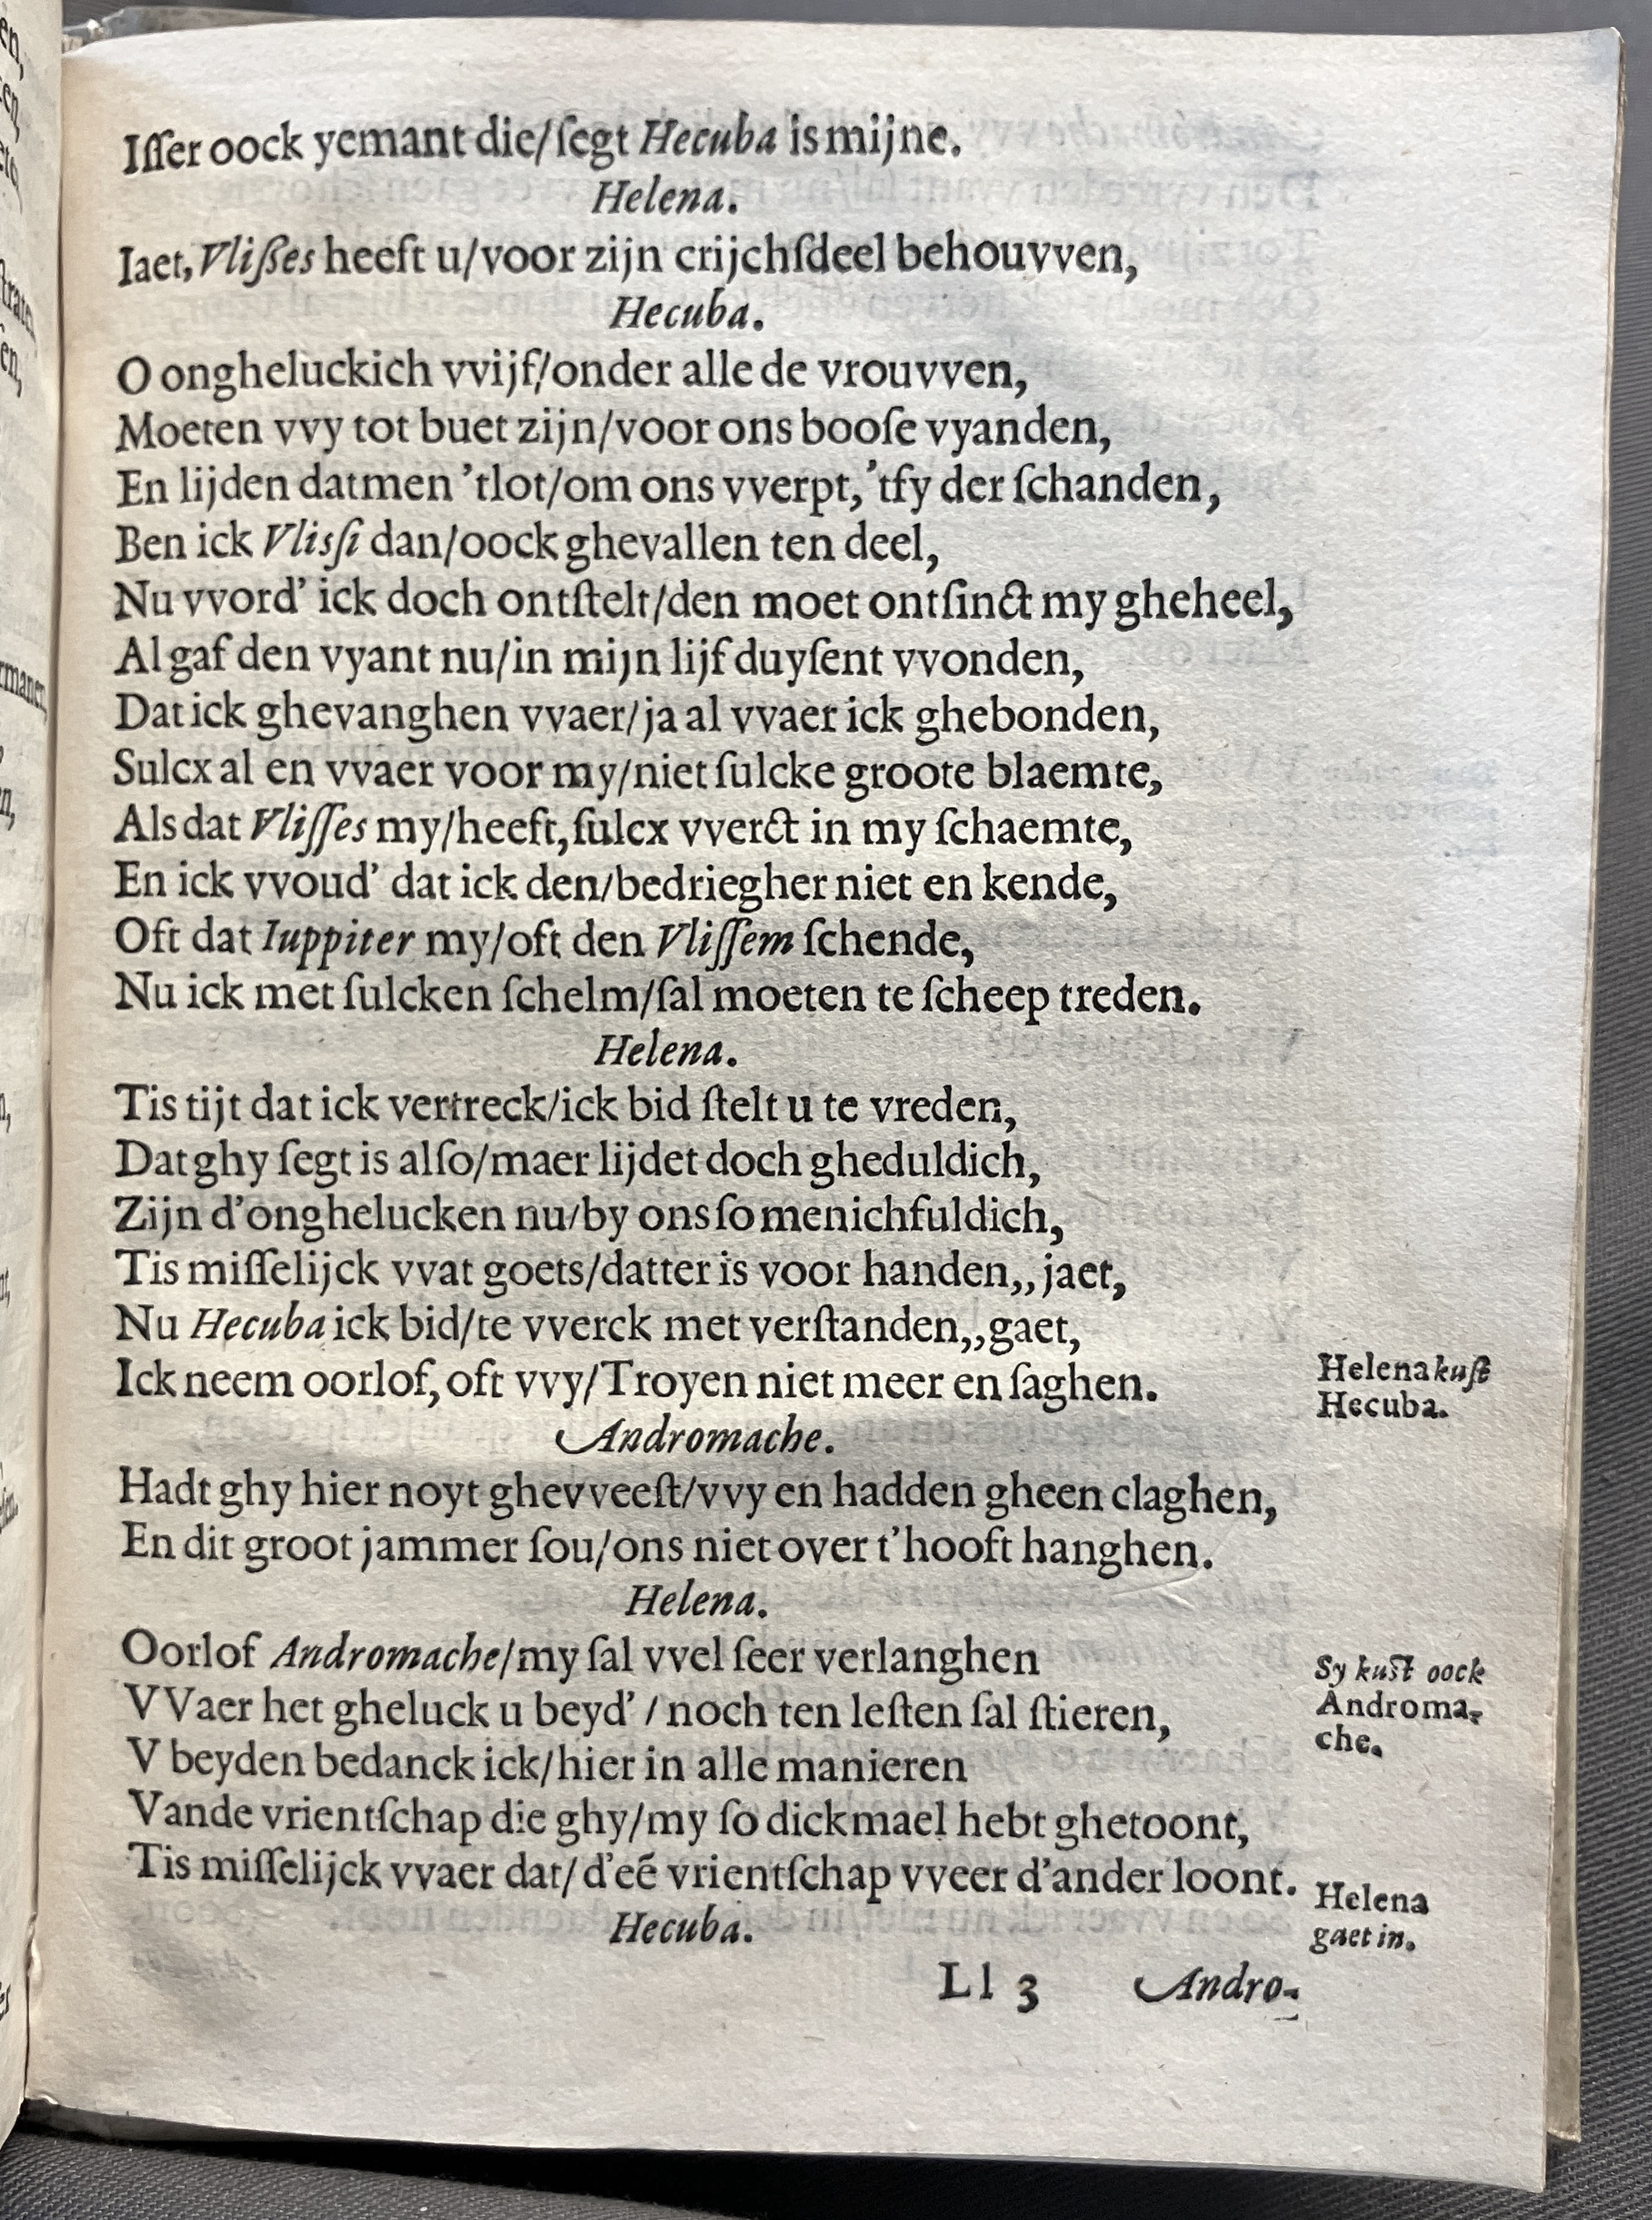 Iſſer oock yemant die/ſegt Hecuba is mijne.
Helena.
Iaet, Vlißes heeft u/voor zijn crijchſdeel behouvven,
Hecuba.
O ongheluckich vvijf/onder alle de vrouvven,
Moeten vvy tot buet zijn/voor ons booſe vyanden,
En lijden datmen 'tlot/om ons vverpt, 'tfy der ſchanden,
Ben ick Vlisſi dan/oock ghevallen ten deel,
Nu vvord' ick doch ontſtelt/den moet ontſinct my gheheel,
Al gaf den vyant nu/in mijn lijf duyſent vvonden,
Dat ick ghevanghen vvaer/ja al vvaer ick ghebonden,
Sulcx al en vvaer voor my/niet ſulcke groote blaemte,
Als dat Vliſſes my/heeft, ſulcx vverct in my ſchaemte,
En ick vvoud' dat ick den/bedriegher niet en kende,
Oft dat Iuppiter my/oft den Vliſſem ſchende,
Nu ick met ſulcken ſchelm/ſal moeten te ſcheep treden.
Helena.
Tis tijt dat ick vertreck/ick bid ſtelt u te vreden,
Dat ghy ſegt is alſo/maer lijdet doch gheduldich,
Zijn d'onghelucken nu/by ons ſo menichfuldich,
Tis miſſelijck vvat goets/datter is voor handen,, jaet,
Nu Hecuba ick bid/te vverck met verſtanden,, gaet,
Ick neem oorlof, oft vvy/Troyen niet meer en ſaghen.
Helena kuſt
Hecuba.
Andromache.
Hadt ghy hier noyt ghevveeſt/vvy en hadden gheen claghen,
En dit groot jammer ſou/ons niet over t'hooft hanghen.
Helena.
Oorlof Andromache/my ſal vvel ſeer verlanghen
Sy kuſt oock
Androma-
che.
VVaer het gheluck u beyd' / noch ten leſten ſal ſtieren,
V beyden bedanck ick/hier in alle manieren
Vande vrientſchap die ghy/my ſo dickmael hebt ghetoont,
Tis miſſelijck vvaer dat/d'eẽ vrientſchap vveer d'ander loont.
Helena
gaet in.
Hecuba.
Ll 3 Andro-